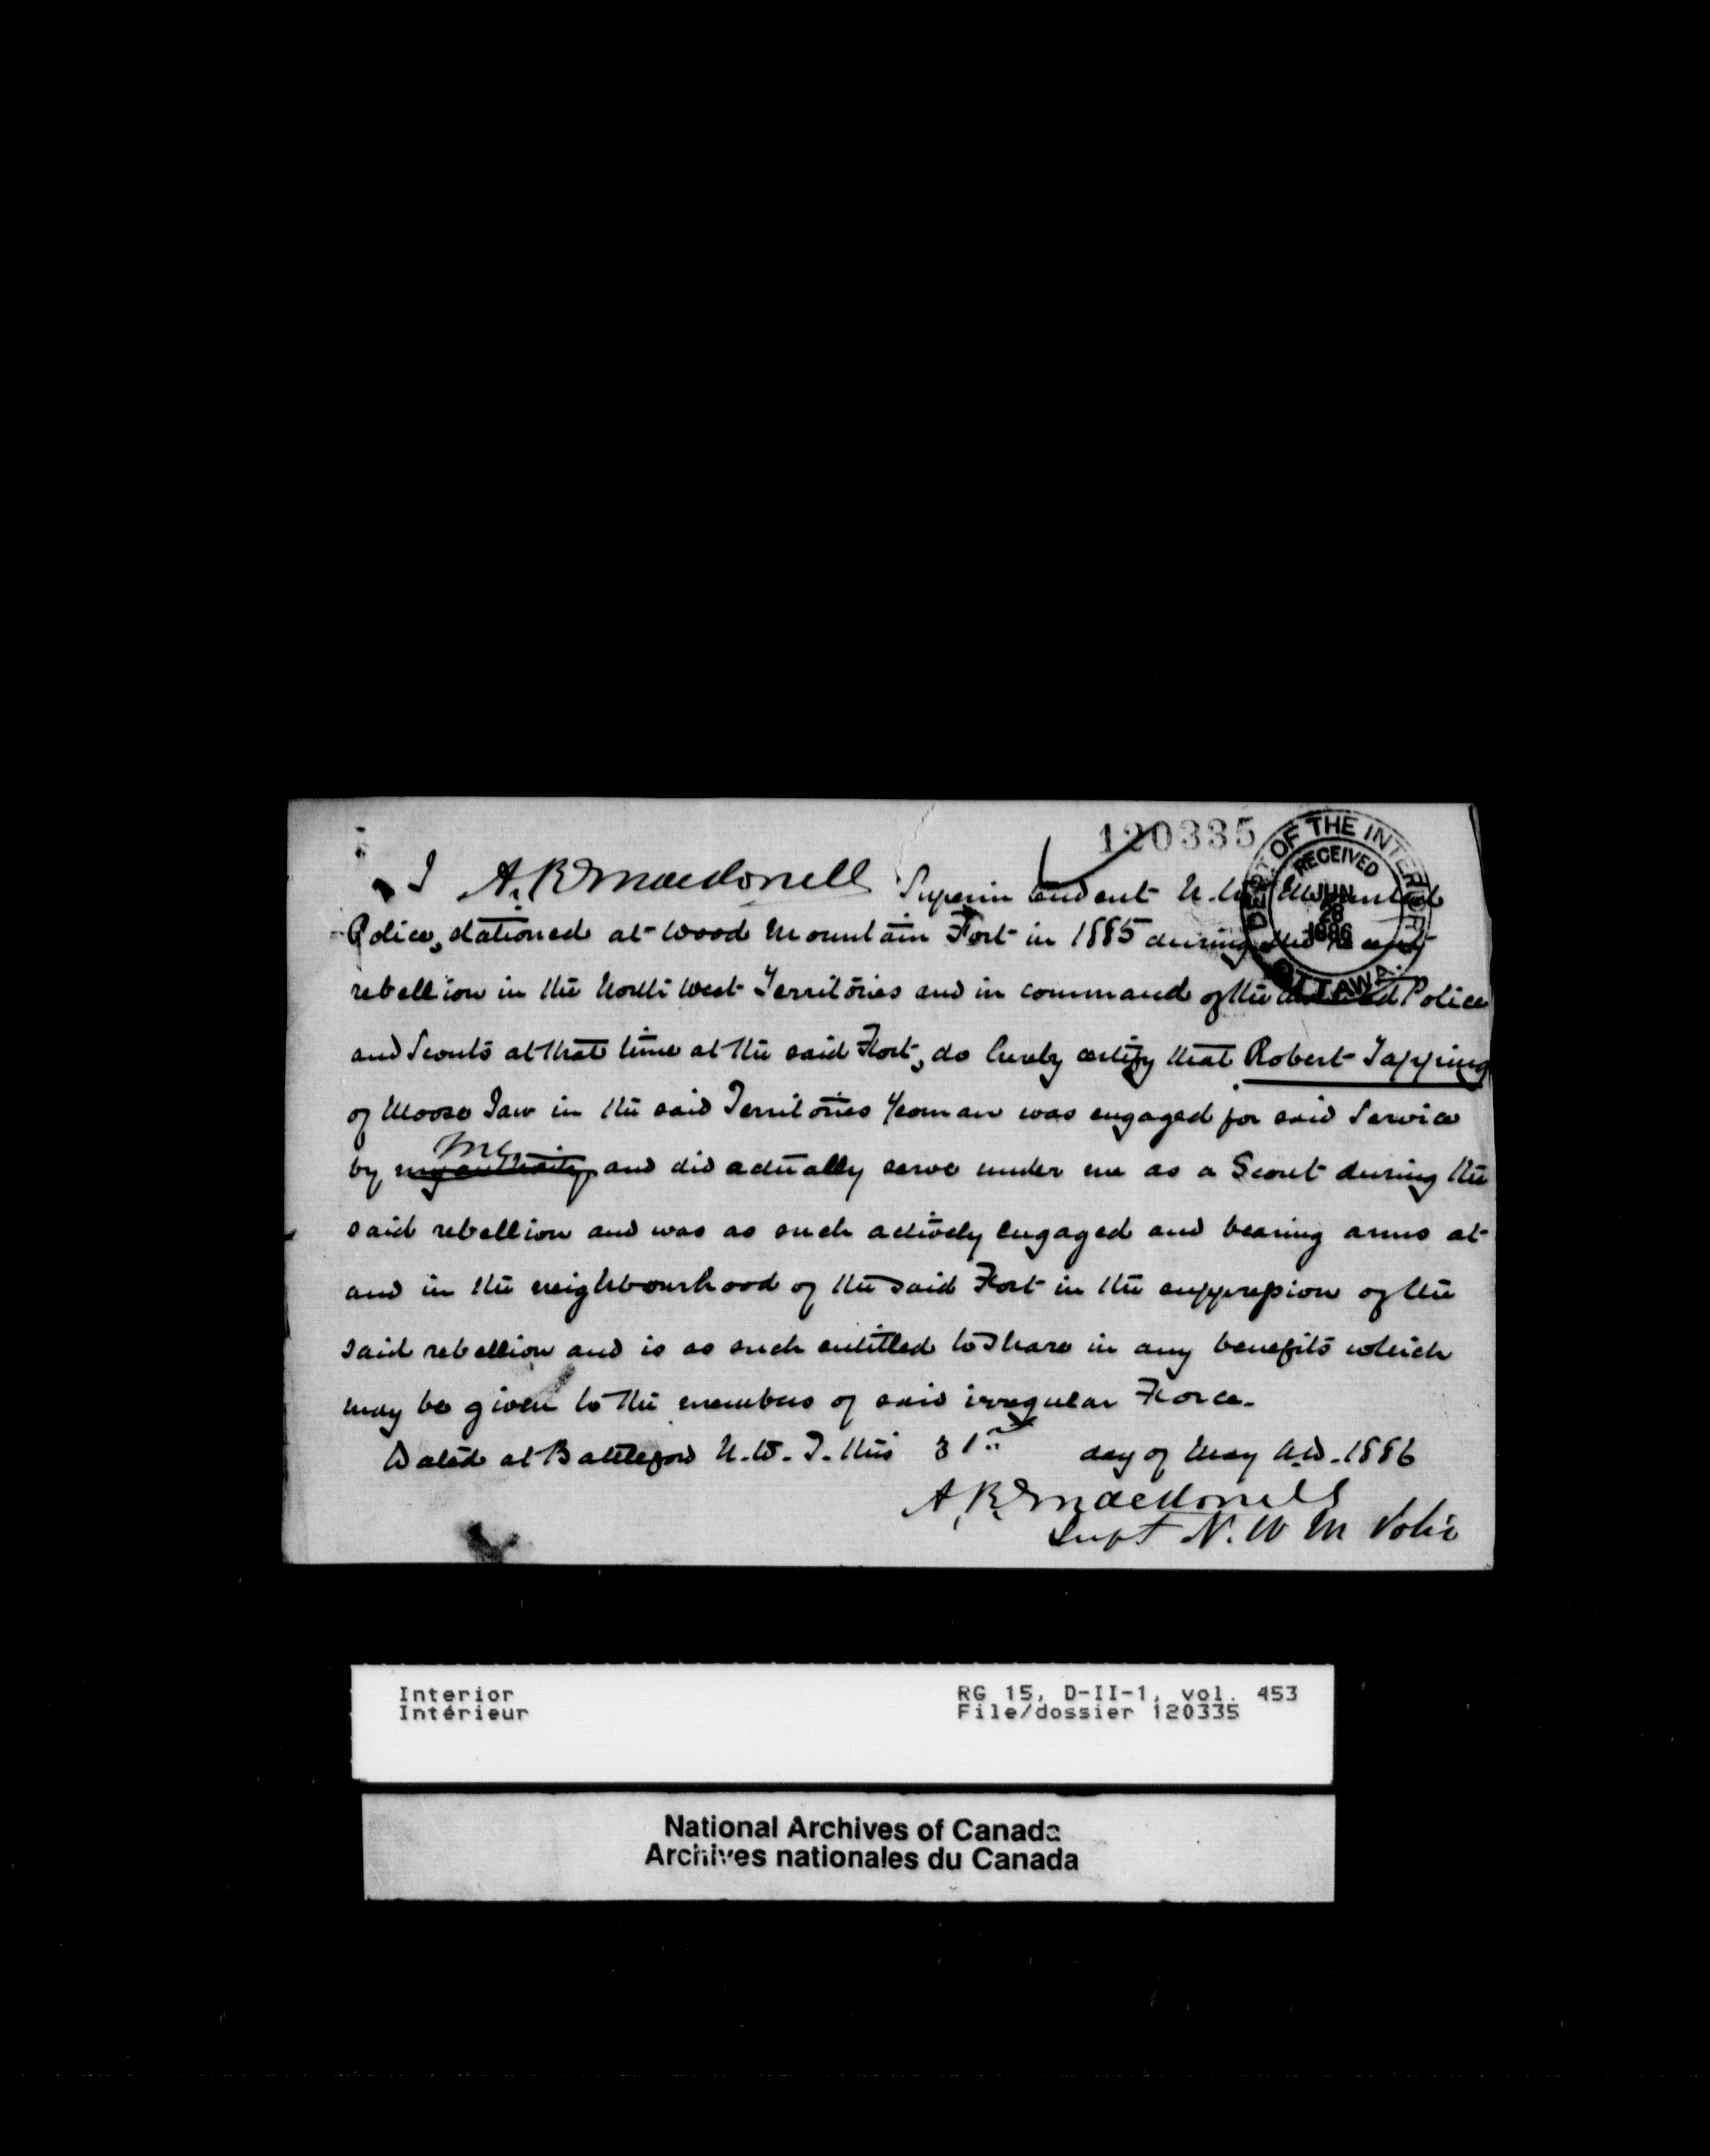 120335
DEPT OF THE INTERIOR
RECEIVED
JUN
28
1886
OTTAWA.
I A. R. Macdonell Superintendent N. W. Mounted
Police, stationed at Wood Mountain Fort in 1885 during the recent
rebellion in the North West Territories and in command of the Police
and Scouts at that time at the said Fort, do hereby certify that Robert Tapping
of Moose Jaw in the said Territories Yeoman was engaged for said Service
me
by my authority and did actually serve under me as a Scout during the
said rebellion and was as such actively engaged and bearing arms at
and in the neighbourhood of the said Fort in the suppression of the
said rebellion and is as such entitled to share in any benefits which
may be given to the members of said irregular Force.
Dated at Battleford N. W. T. this 31st day of May A.D. 1886
A. R. Macdonell
Supt N. W M Police
Interior
Intérieur
RG 15, D-II-1, vol. 453
File/dossier 120335
National Archives of Canada
Archives nationales du Canada